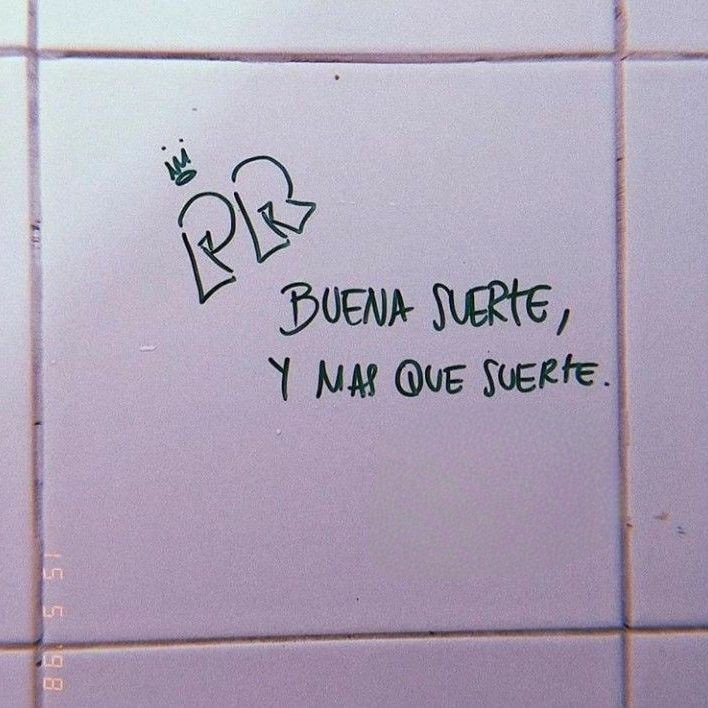 PR
BUENA SUERTE,
Y MAS QUE SUERTE.
15 5 '98